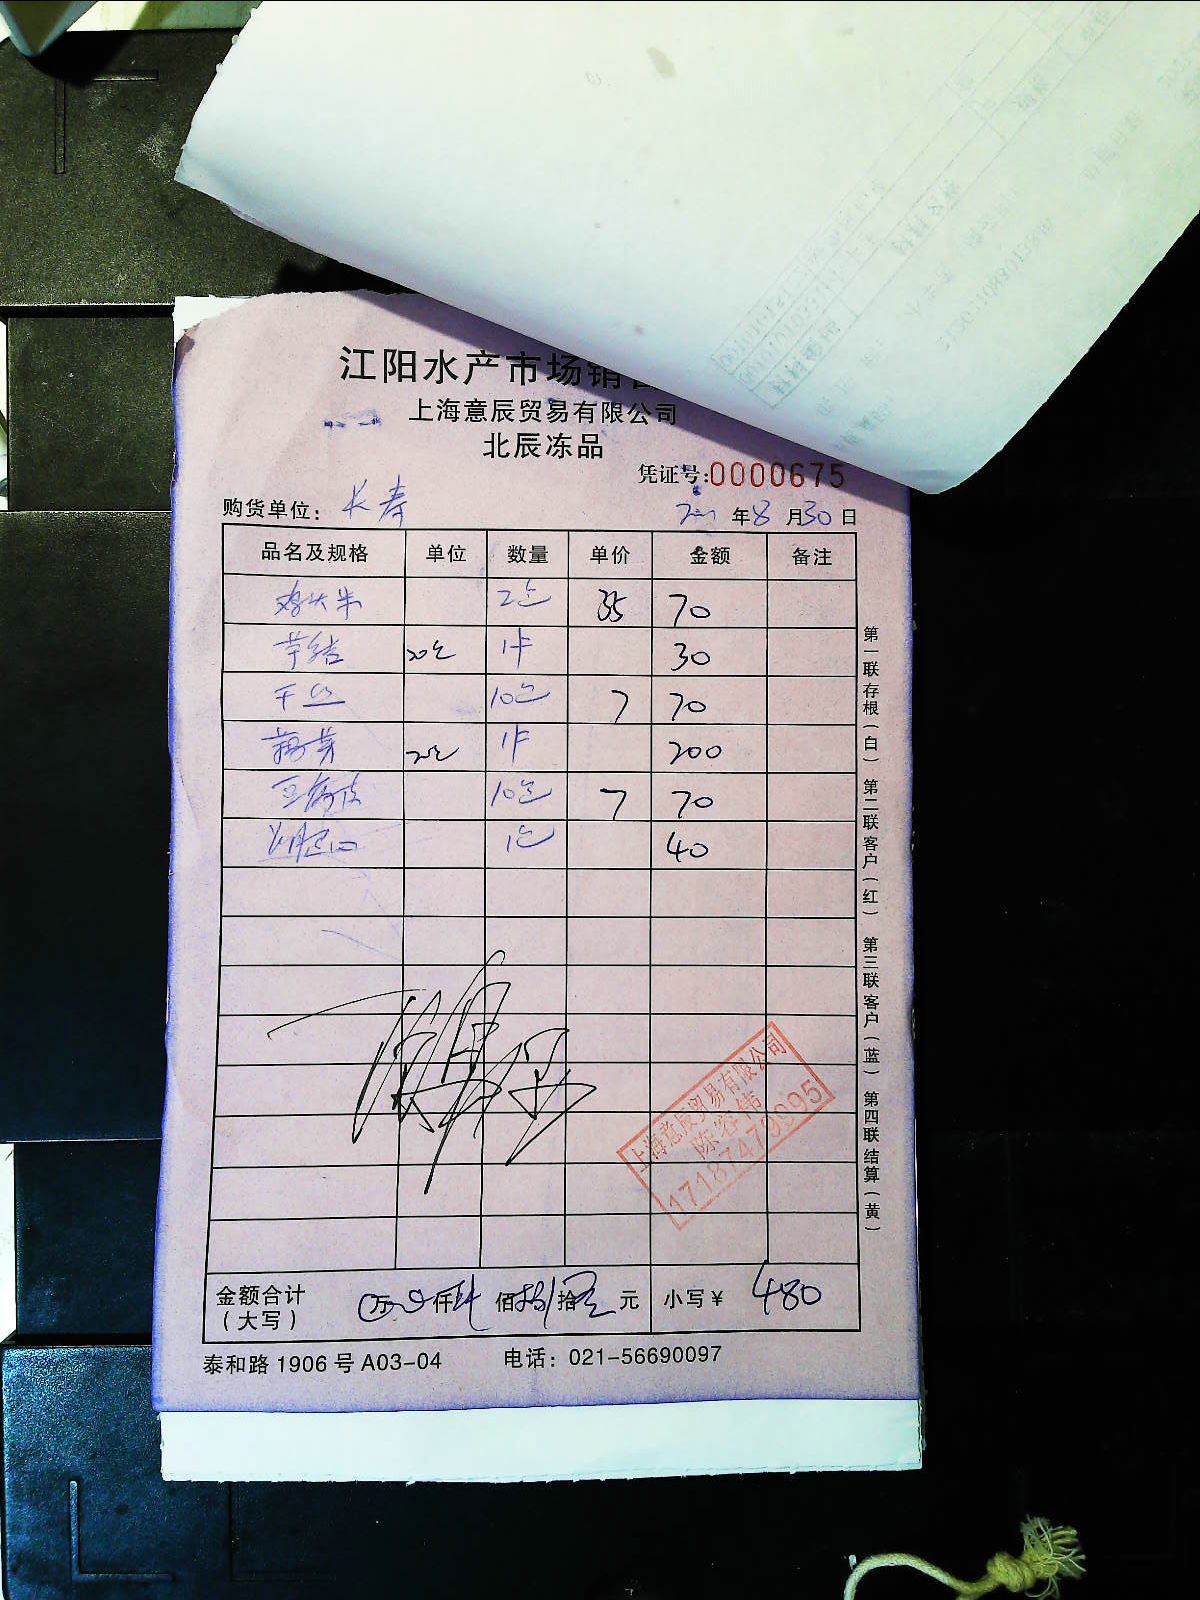 江阳水产市场销
上海意辰贸易有限公司
北辰冻品
凭证号:0000675
购货单位: 长寿 年8月30日
品名及规格 单位 数量 单价 金额 备注
鸡头米 2包 35 70
芋结 20包 1件 30
干丝 10包 7 70
1件 200
豆腐皮 10包 7 70
1包 40
第一联存根(白) 第二联客户(红) 第三联客户(蓝) 第四联结算(黄)
上海意辰贸易有限公司
陈容伟
17187479995
金额合计(大写) 万 仟 佰 拾 元 小写¥ 480
泰和路1906号A03-04 电话: 021-56690097